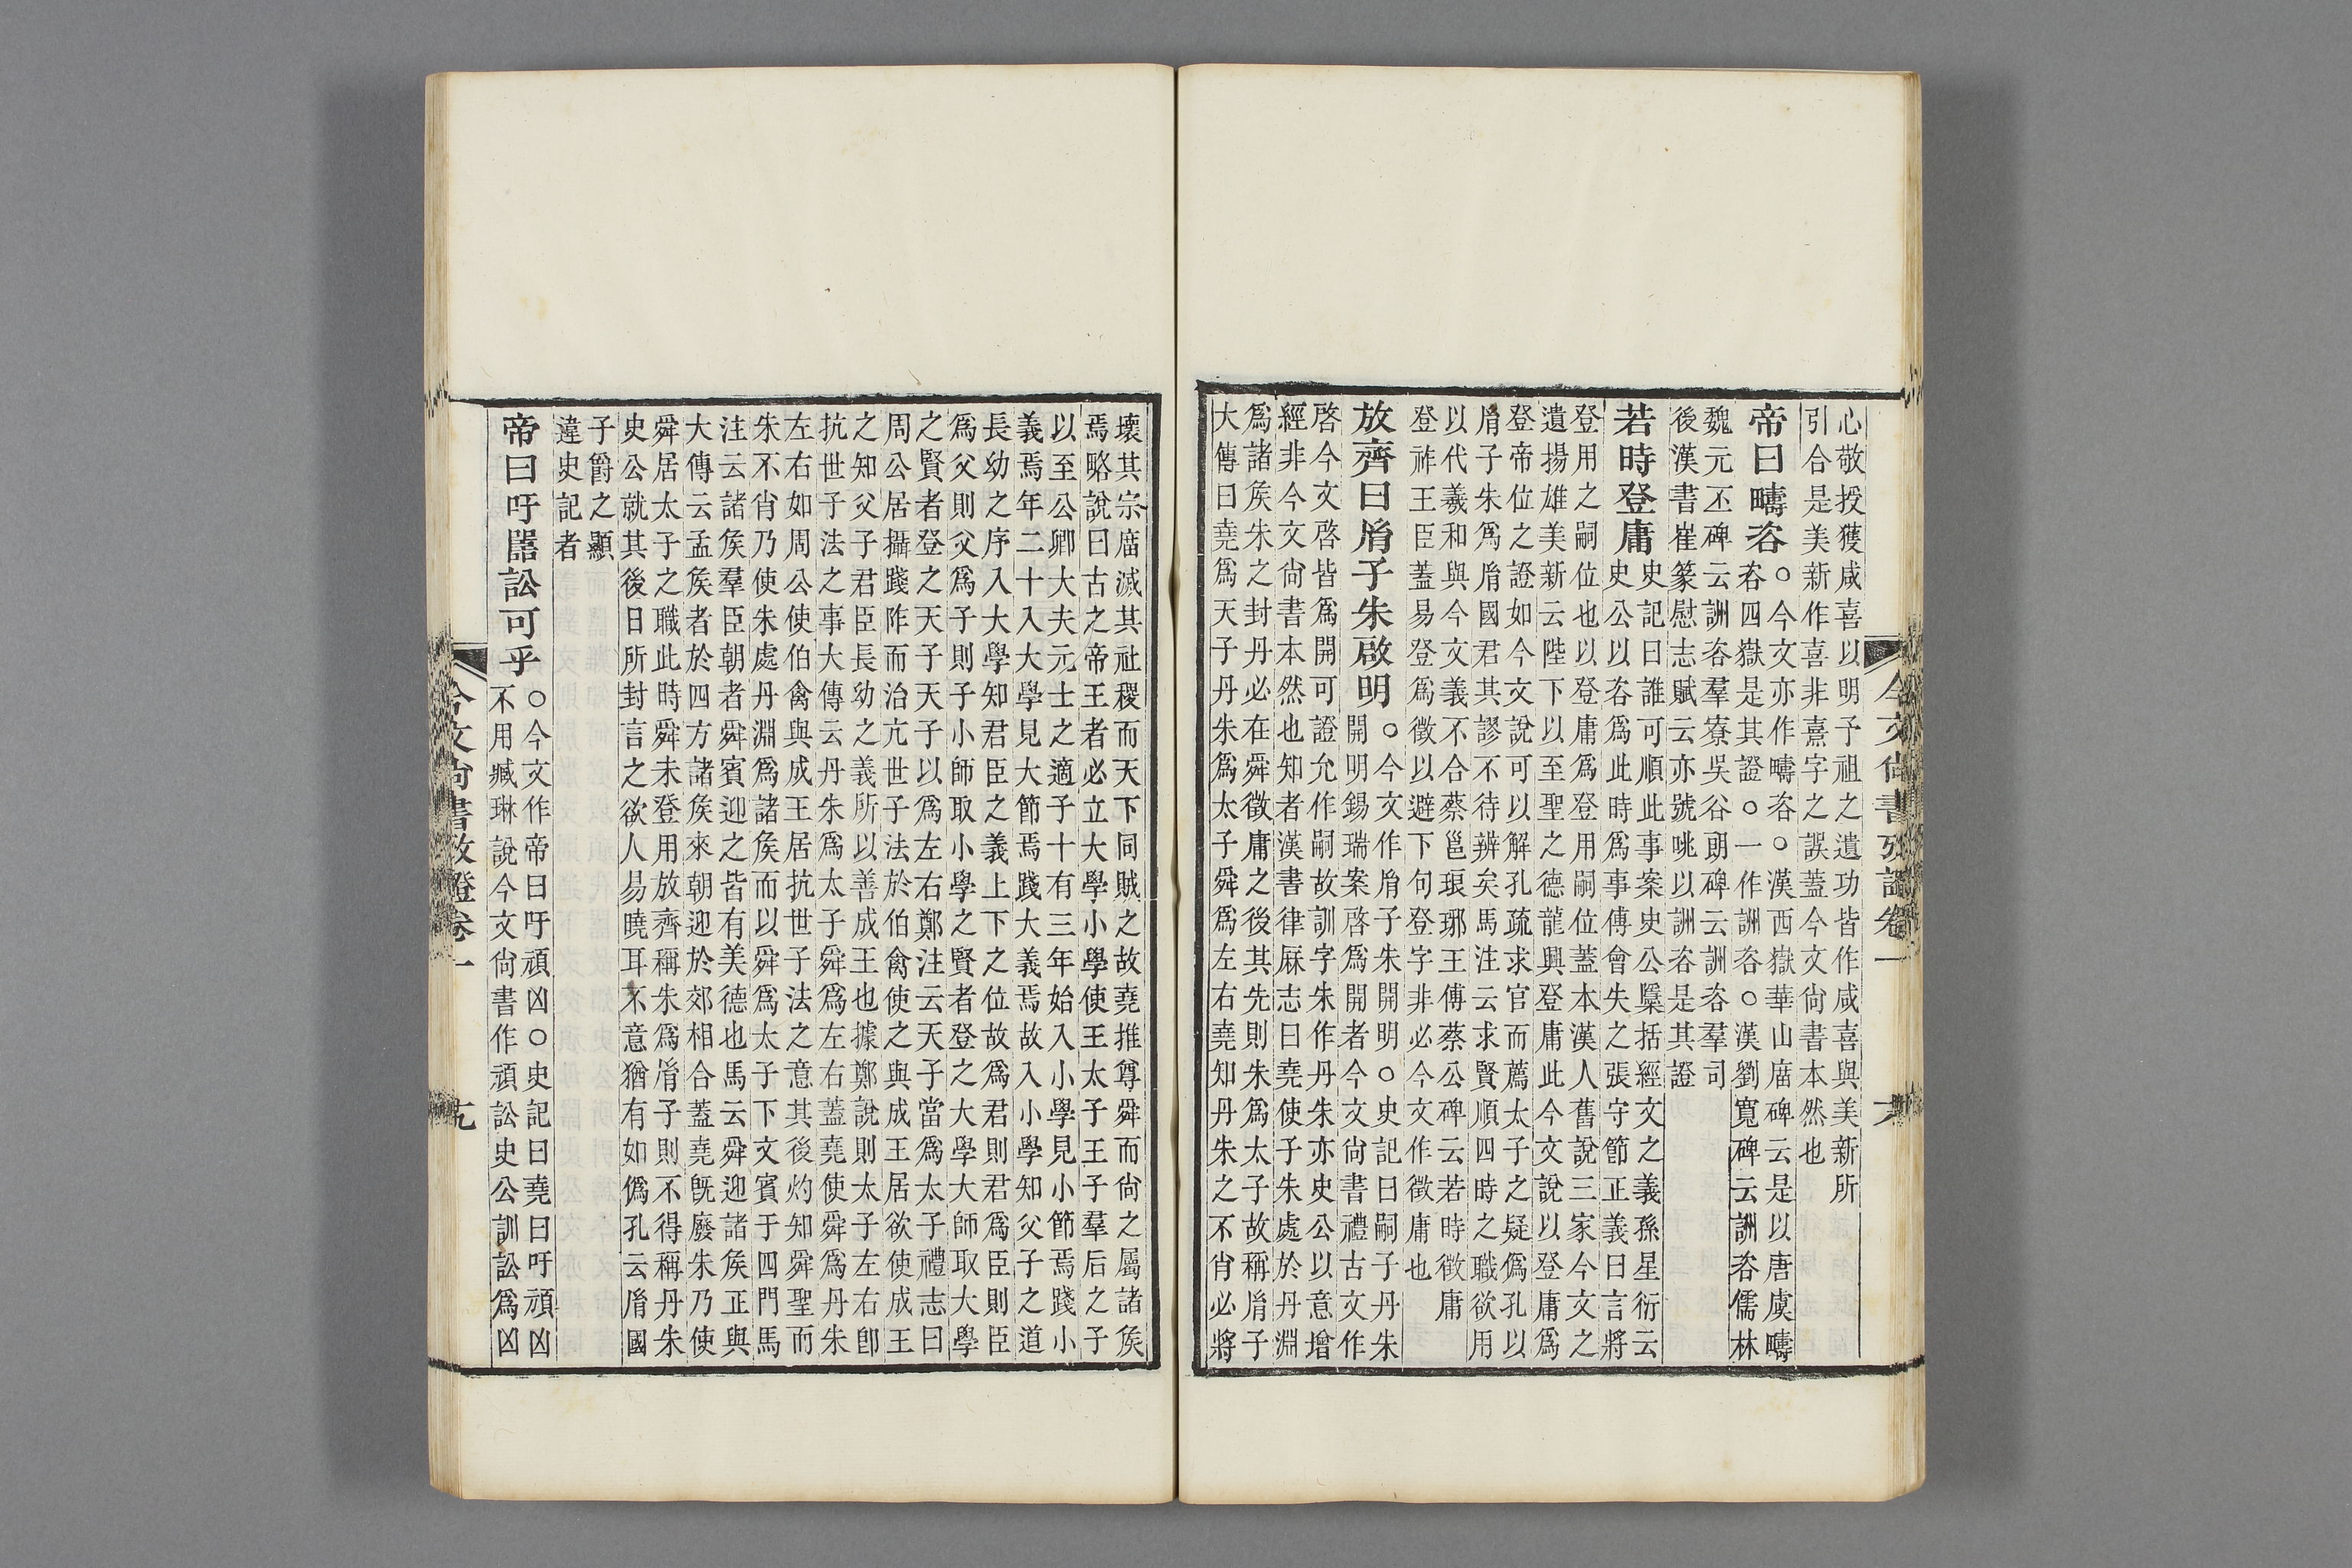 心敬授獲咸喜以明子祖之遺功皆作咸喜與美新所
引合是美新作喜非熹字之誤蓋今文尙書本然也
帝曰疇咨○今文亦作疇咨○漢西嶽華山廟碑云是以唐虞疇
咨四嶽是其證○一作詶咨○漢劉寬碑云詶咨儒林
魏元丕碑云詶咨羣寮吳谷朗碑云詶咨羣司
後漢書崔篆慰志賦云亦號咷以詶咨是其證
若時登庸史記曰誰可順此事案史公檃括經文之義孫星衍云
史公以咨爲此時爲事傳會失之張守節正義曰言將
登用之嗣位也以登庸爲登用嗣位蓋本漢人舊說三家今文之
遺揚雄美新云陛下以至聖之德龍興登庸此今文說以登庸爲
登帝位之證如今文說可以解孔疏求官而薦太子之疑僞孔以
胤子朱爲胤國君其謬不待辨矣馬注云求賢順四時之職欲用
以代羲和與今文義不合蔡邕琅琊王傅蔡公碑云若時徵庸
登祚王臣蓋易登爲徵以避下句登字非必今文作徵庸也
放齊曰胤子朱啟明○今文作胤子朱開明○史記曰嗣子丹朱
開明錫瑞案啓爲開者今文尙書禮古文作
啓今文啓皆爲開可證允作嗣故訓字朱作丹朱亦史公以意增
經非今文尙書本然也知者漢書律厤志曰堯使子朱處於丹淵
爲諸矦朱之封丹必在舜徵庸之後其先則朱爲太子故稱胤子
大傳曰堯爲天子丹朱爲太子舜爲左右堯知丹朱之不肖必將
今文尙書攷證卷一
大
壞其宗廟滅其社稷而天下同賊之故堯推尊舜而尙之屬諸矦
焉略說曰古之帝王者必立大學小學使王太子王子羣后之子
以至公卿大夫元士之適子十有三年始入小學見小節焉踐小
義焉年二十入大學見大節焉踐大義焉故入小學知父子之道
長幼之序入大學知君臣之義上下之位故爲君則君爲臣則臣
爲父則父爲子則子小師取小學之賢者登之大學大師取大學
之賢者登之天子天子以爲左右鄭注云天子當爲太子禮志曰
周公居攝踐阼而治亢世子法於伯禽使之與成王居欲使成王
之知父子君臣長幼之義所以善成王也據鄭說則太子左右卽
抗世子法之事大傳云丹朱爲太子舜爲左右蓋堯使舜爲丹朱
左右如周公使伯禽與成王居抗世子法之意其後灼知舜聖而
朱不肖乃使朱處丹淵爲諸矦而以舜爲太子下文賓于四門馬
注云諸矦羣臣朝者舜賓迎之皆有美德也馬云舜迎諸矦正與
大傳云孟矦者於四方諸矦來朝迎於郊相合蓋堯旣廢朱乃使
舜居太子之職此時舜未登用放齊稱朱爲胤子則不得稱丹朱
史公就其後日所封言之欲人易曉耳不意猶有如僞孔云胤國
子爵之顯
違史記者
帝曰吁嚚訟可乎○今文作帝曰吁頑凶○史記曰堯曰吁頑凶
不用臧琳說今文尙書作頑訟史公訓訟爲凶
今文尙書攷證卷一